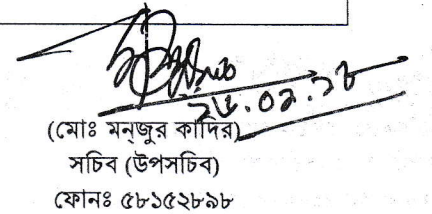 (মোঃ মন্‌জুর কাদির)
সচিব (উপসচিব)
ফোনঃ ৫৮১৫২৮৯৮